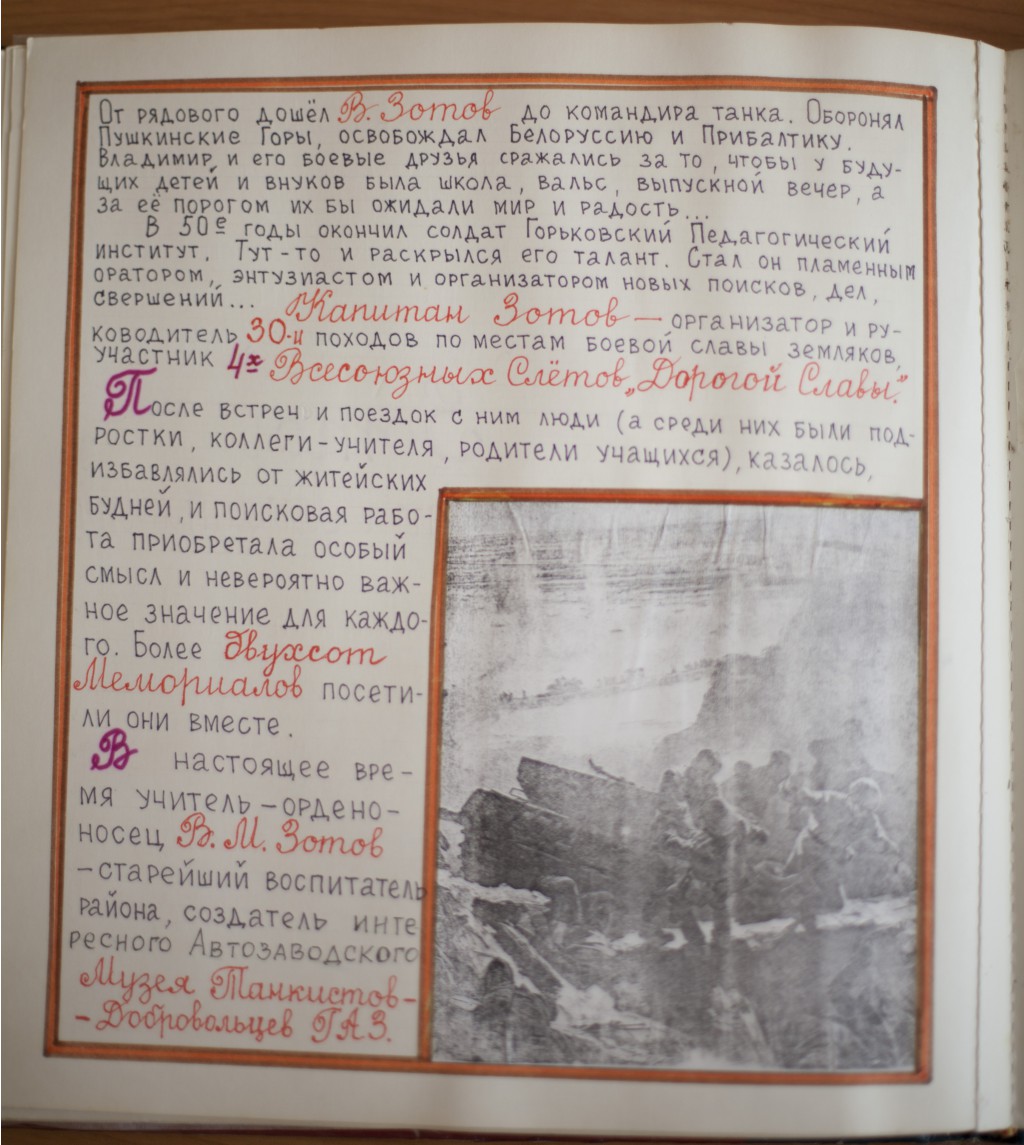 От рядового дошёл В. Зотов до командира танка. Оборонял
Пушкинские Горы, освобождал Белоруссию и Прибалтику.
Владимир и его боевые друзья сражались за то, чтобы у буду-
щих детей и внуков была школа, вальс, выпускной вечер, а
за её порогом их бы ожидали мир и радость...
В 50е годы окончил солдат Горьковский Педагогический
институт. Тут-то и раскрылся его талант. Стал он пламенным
оратором, энтузиастом и организатором новых поисков, дел,
свершений... Капитан Зотов — организатор и ру-
ководитель 30-и походов по местам боевой славы земляков,
участник 4х Всесоюзных Слётов „Дорогой Славы".
После встреч и поездок с ним люди (а среди них были под-
ростки, коллеги-учителя, родители учащихся), казалось,
избавлялись от житейских
будней, и поисковая рабо-
та приобретала особый
смысл и невероятно важ-
ное значение для каждо-
го. Более двухсот
Мемориалов посети-
ли они вместе.
В настоящее вре-
мя учитель-ордено-
носец В. М. Зотов
-старейший воспитатель
района, создатель инте
ресного Автозаводского
Музея Танкистов-
-Добровольцев ГАЗ.